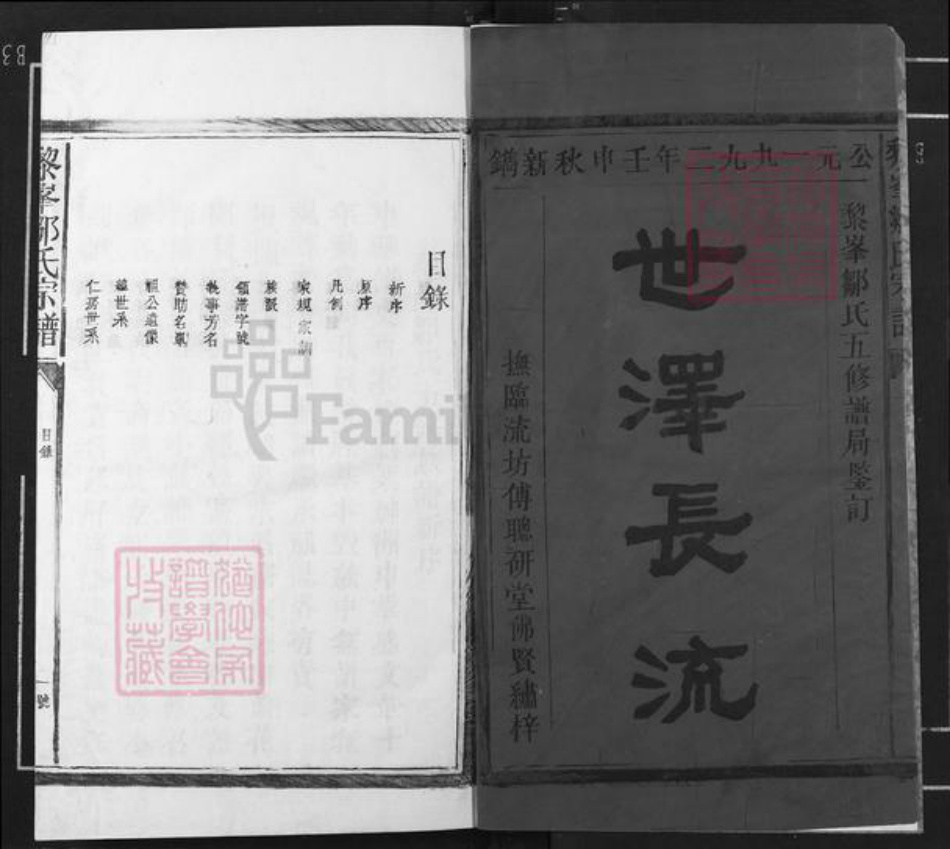 公元一九九二年壬申秋新鐫
黎峯鄒氏五修譜局鑒訂
世澤長流
撫臨流坊傅聰研堂佛賢繡梓
目錄
新序
原序
凡例
家規家訓
族誡
領譜字號
執事芳名
贊助名單
祖公遺像
總世系
仁房世系
黎峯鄒氏宗譜
目錄
一號
猶他家譜學會特藏
Famil
B3